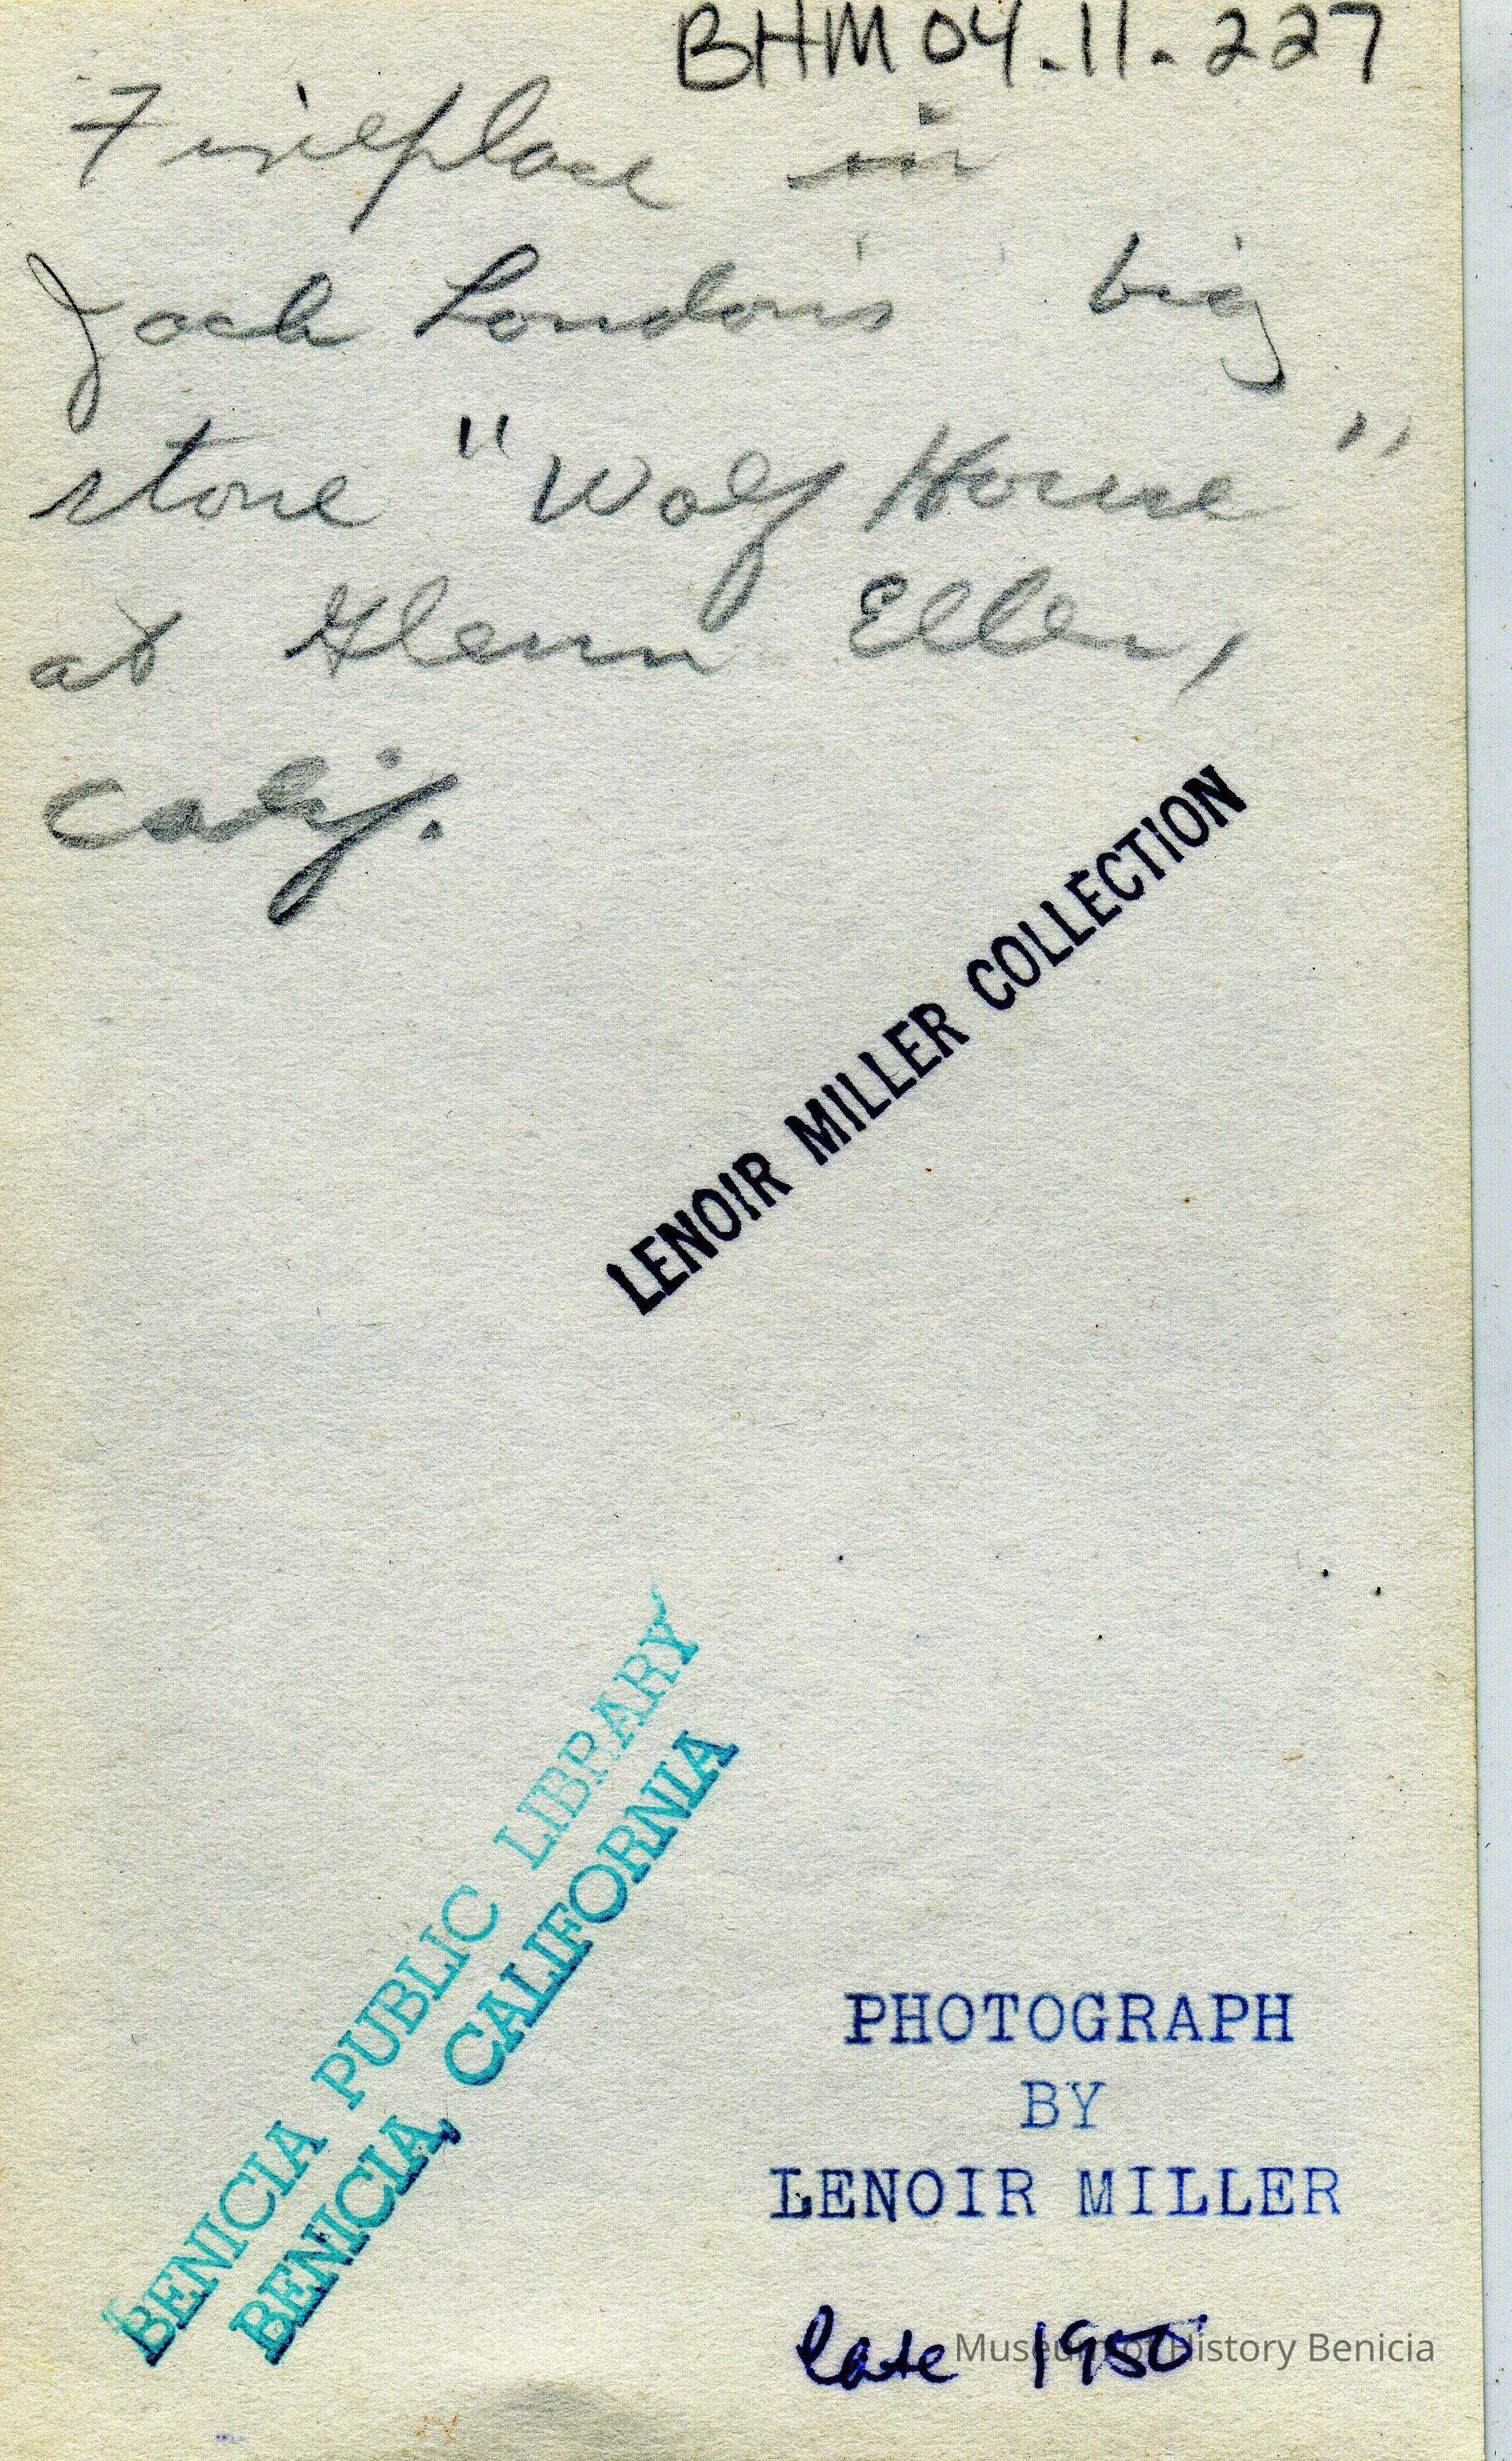 BHM 04.11.227
Fireplace in
Jack London's big
stone "Wolf House"
at Glenn Ellen,
Calif.
LENOIR MILLER COLLECTION
BENICIA PUBLIC LIBRARY
BENICIA, CALIFORNIA
PHOTOGRAPH
BY
LENOIR MILLER
late 1950'
Museum of History Benicia